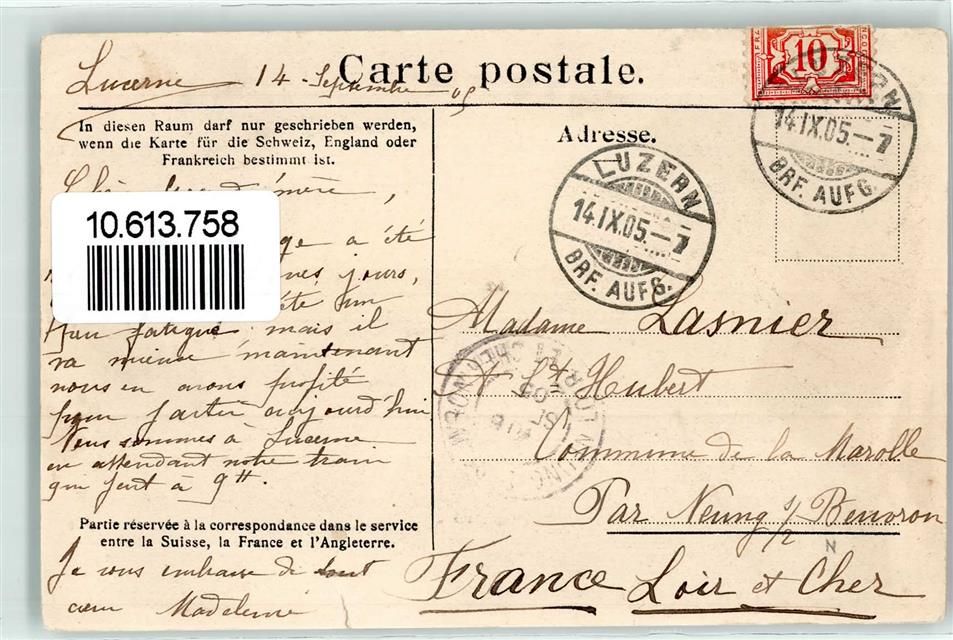 Lucerne 14 Septembre 05
Carte postale.
10
LUZERN
14.IX.05.–7
BRF. AUFG.
In diesen Raum darf nur geschrieben werden,
wenn die Karte für die Schweiz, England oder
Frankreich bestimmt ist.
Adresse.
LUZERN
14.IX.05.–7
BRF. AUFG.
10.613.758
a été
jours,
été un
peu fatigué mais il
va mieux maintenant
nous en avons profité
pour partir aujourd'hui
Nous sommes à Lucerne
en attendant notre train
qui part à 9H.
Partie réservée à la correspondance dans le service
entre la Suisse, la France et l'Angleterre.
Je vous embrasse de tout
cœur Madeleine
Madame Lasnier
A St Hubert
Commune de la Marolle
Par Neung s/ Beuvron
France Loir et Cher